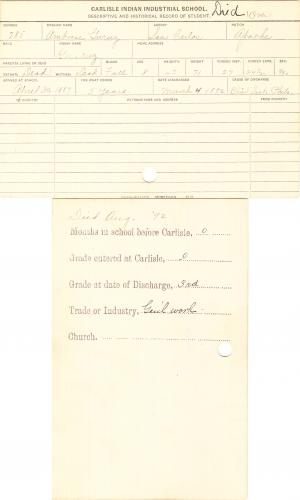 CARLISLE INDIAN INDUSTRIAL SCHOOL. Died
DESCRIPTIVE AND HISTORICAL RECORD OF STUDENT.
NUMBER ENGLISH NAME AGENCY NATION
785 Ambrose San Carlos Apache
BAND INDIAN NAME HOME ADDRESS
PARENTS LIVING OR DEAD BLOOD AGE HEIGHT WEIGHT FORCED INSP. FORCED EXPR. SEX
FATHER Dead MOTHER Dead Full 8 71 27 M.
ARRIVED AT SCHOOL FOR WHAT PERIOD DATE DISCHARGED CAUSE OF DISCHARGE
April 30, 1887 5 Years March 4 1892 Died
TO COUNTRY PATRONS NAME AND ADDRESS FROM COUNTRY
Died Aug. '92
Months in school before Carlisle, 0
Grade entered at Carlisle, 0
Grade at date of Discharge, 3rd
Trade or Industry, Gen'l work
Church,